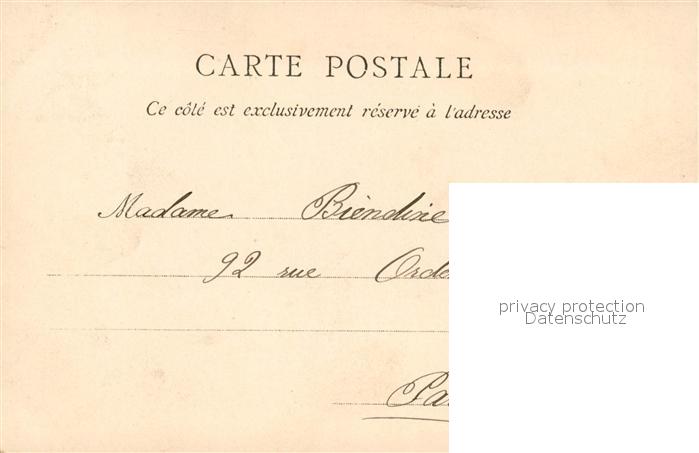 CARTE POSTALE
Ce côté est exclusivement réservé à l'adresse
Madame Biendiné
92 rue Orde
privacy protection
Datenschutz
Pa